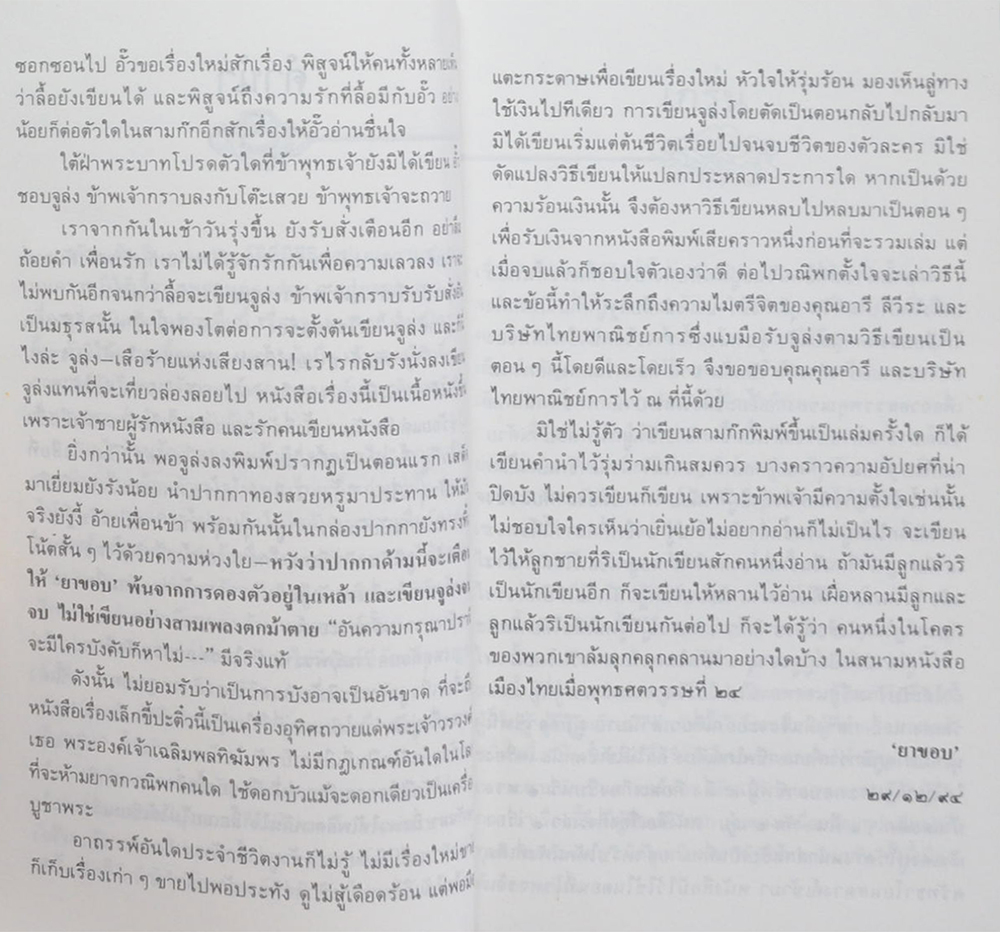 ซอกซอนไป อั๊วขอเรื่องใหม่สักเรื่อง พิสูจน์ให้คนทั้งหลาย
ว่าลื้อยังเขียนได้ และพิสูจน์ถึงความรักที่ลื้อมีกับอั๊ว
น้อยก็ต่อตัวใดในสามก๊กอีกสักเรื่องให้อั๊วอ่านชื่นใจ
ใต้ฝ่าพระบาทโปรดตัวใดที่ข้าพุทธเจ้ายังมิได้เขียน
ชอบจูล่ง ข้าพเจ้ากราบลงกับโต๊ะเสวย ข้าพุทธเจ้าจะถวาย
เราจากกันในเช้าวันรุ่งขึ้น ยังรับสั่งเตือนอีก
ถ้อยคำ เพื่อนรัก เราไม่ได้รู้จักรักกันเพื่อความเลวลง
ไม่พบกันอีกจนกว่าลื้อจะเขียนจูล่ง ข้าพเจ้ากราบรับรับสั่ง
เป็นมธุรสนั้น ในใจพองโตต่อการจะตั้งต้นเขียนจูล่ง
ไงล่ะ จูล่ง–เสือร้ายแห่งเสียงสาน! เรไรกลับรังนั่งลง
จูล่งแทนที่จะเที่ยวล่องลอยไป หนังสือเรื่องนี้เป็นเนื้อหนัง
เพราะเจ้าชายผู้รักหนังสือ และรักคนเขียนหนังสือ
ยิ่งกว่านั้น พอจูล่งลงพิมพ์ปรากฏเป็นตอนแรก
มาเยี่ยมยังรังน้อย นำปากกาทองสวยหรูมาประทาน
จริงยังงี้ อ้ายเพื่อนข้า พร้อมกันนั้นในกล่องปากกายังทรง
โน้ตสั้น ๆ ไว้ด้วยความห่วงใย–หวังว่าปากกาด้ามนี้จะ
ให้ ‘ยาขอบ’ พ้นจากการดองตัวอยู่ในเหล้า และเขียนจูล่ง
จบ ไม่ใช่เขียนอย่างสามเพลงตกม้าตาย “อันความกรุณา
จะมีใครบังคับก็หาไม่---” มีจริงแท้
ดังนั้น ไม่ยอมรับว่าเป็นการบังอาจเป็นอันขาด ที่จะ
หนังสือเรื่องเล็กขี้ปะติ๋วนี้เป็นเครื่องอุทิศถวายแด่พระเจ้าวรวงศ์
เธอ พระองค์เจ้าเฉลิมพลทิฆัมพร ไม่มีกฎเกณฑ์อันใดใน
ที่จะห้ามยาจกวณิพกคนใด ใช้ดอกบัวแม้จะดอกเดียวเป็น
บูชาพระ
อาถรรพ์อันใดประจำชีวิตงานก็ไม่รู้ ไม่มีเรื่องใหม่
ก็เก็บเรื่องเก่า ๆ ขายไปพอประทัง ดูไม่สู้เดือดร้อน แต่พอ
แตะกระดาษเพื่อเขียนเรื่องใหม่ หัวใจให้รุ่มร้อน มองเห็นลู่ทาง
ใช้เงินไปทีเดียว การเขียนจูล่งโดยตัดเป็นตอนกลับไปกลับมา
มิได้เขียนเริ่มแต่ต้นชีวิตเรื่อยไปจนจบชีวิตของตัวละคร มิใช่
ดัดแปลงวิธีเขียนให้แปลกประหลาดประการใด หากเป็นด้วย
ความร้อนเงินนั้น จึงต้องหาวิธีเขียนหลบไปหลบมาเป็นตอน ๆ
เพื่อรับเงินจากหนังสือพิมพ์เสียคราวหนึ่งก่อนที่จะรวมเล่ม แต่
เมื่อจบแล้วก็ชอบใจตัวเองว่าดี ต่อไปวณิพกตั้งใจจะเล่าวิธีนี้
และข้อนี้ทำให้ระลึกถึงความไมตรีจิตของคุณอารี ลีวีระ และ
บริษัทไทยพาณิชย์การซึ่งแบมือรับจูล่งตามวิธีเขียนเป็น
ตอน ๆ นี้โดยดีและโดยเร็ว จึงขอขอบคุณคุณอารี และบริษัท
ไทยพาณิชย์การไว้ ณ ที่นี้ด้วย
มิใช่ไม่รู้ตัว ว่าเขียนสามก๊กพิมพ์ขึ้นเป็นเล่มครั้งใด ก็ได้
เขียนคำนำไว้รุ่มร่ามเกินสมควร บางคราวความอัปยศที่น่า
ปิดบัง ไม่ควรเขียนก็เขียน เพราะข้าพเจ้ามีความตั้งใจเช่นนั้น
ไม่ชอบใจใครเห็นว่าเยิ่นเย้อไม่อยากอ่านก็ไม่เป็นไร จะเขียน
ไว้ให้ลูกชายที่ริเป็นนักเขียนสักคนหนึ่งอ่าน ถ้ามันมีลูกแล้วริ
เป็นนักเขียนอีก ก็จะเขียนให้หลานไว้อ่าน เผื่อหลานมีลูกและ
ลูกแล้วริเป็นนักเขียนกันต่อไป ก็จะได้รู้ว่า คนหนึ่งในโคตร
ของพวกเขาล้มลุกคลุกคลานมาอย่างใดบ้าง ในสนามหนังสือ
เมืองไทยเมื่อพุทธศตวรรษที่ ๒๔
‘ยาขอบ’
๒๙/๑๒/๙๔